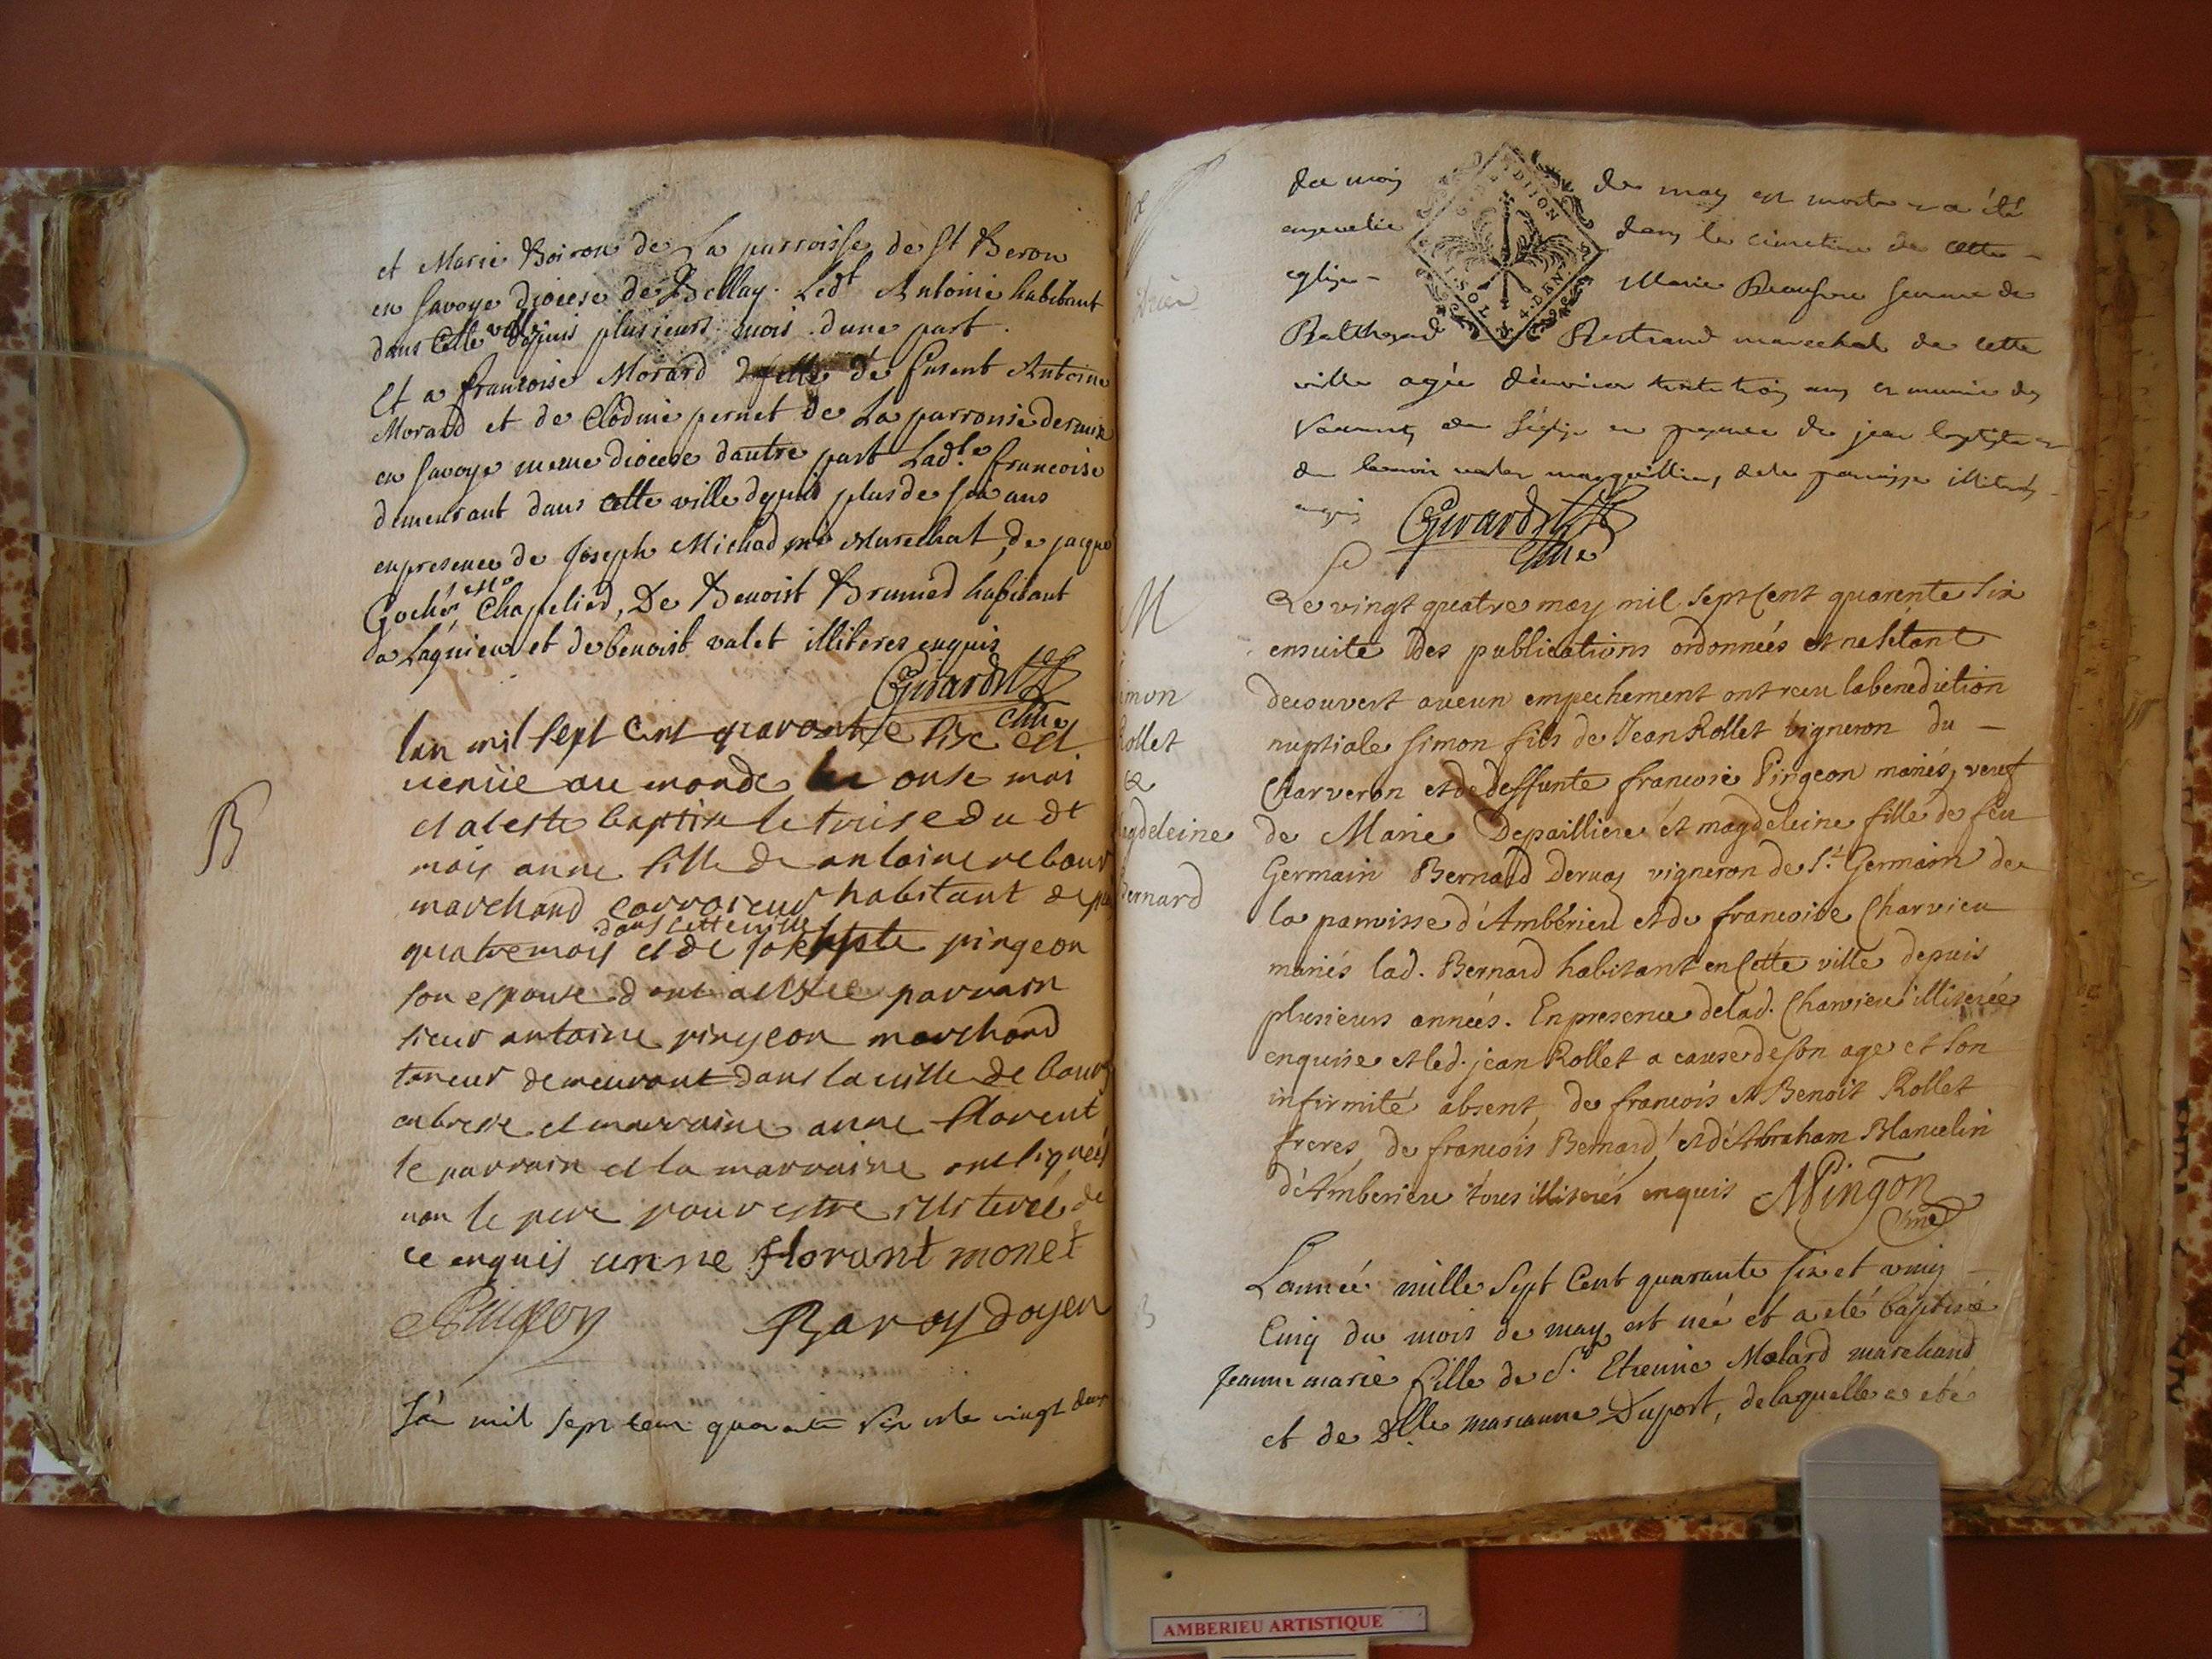 et Marie Boiron de La parroisse de St Beron
en Savoye diocese de Bellay. Ledt Antoine habitant
dans Cette ville depuis plusieurs mois dune part.
Et a francoise Morard fille de Antoine
Morard et de Clodine pernet de La parroisse
en Savoye meme diocese dautre part Ladte francoise
demeurant dans cette ville depuis plus de six ans
en presence de Joseph Michad me Marechal, de jacque
Gochet me Chapelier, De Benoist Brunied habitant
a Lagnieu et de benoist valet illiteres enquis
Girard
Curé
B
lan mil sept cent quarante six est
venüe au monde le onse mai
et a este baptise le treise du dt
mois anne fille de antoine rebour
marchand corroieur habitant depuis
dans cette ville
quatre mois et de josephte pingeon
son espouse dont a esté parrain
sieur antoine pingeon marchand
taneur demeurant dans la ville de bourg
en bresse et marraine anne florent
le parrain et la marraine ont signés
non le pere pour estre illiteré de
ce enquis anne florant monet
Pingeon Ravoy doyen
lan mil sept cent quarante six et le vingt deux
du mois de may est morte et a été
ensevelie dans le cimetiere de cette
eglise Marie femme de
Balthazard Bertrand marechal de cette
ville agée d'environ trente trois ans et munie des
Sacrements de l'église en presence de jean baptiste
marguilliers, de la paroisse illiterés
enquis Girard
Curé
DIJON
SOL 4 DEN
M
Simon
Rollet
&
Magdeleine
Bernard
Le vingt quatre may mil sept Cent quarente Six
ensuite des publications ordonnées et ne s'étant
decouvert aucun empechement ont receu la benediction
nuptiale Simon fils de Jean Rollet vigneron du
Charveron et de deffunte francoise Pingeon mariés, veuf
de Marie Depailliere et magdeleine fille de feu
Germain Bernard Dervas vigneron de St Germain de
la paroisse d'Ambérieu et de francoise Charvieu
mariés lad. Bernard habitant en Cette ville depuis
plusieurs années. En presence de lad. Charvieu illiterée
enquise et led. jean Rollet a cause de son age et son
infirmité absent de francois et Benoit Rollet
freres, de francois Bernard, et d'Abraham Blancelin
d'Amberieu tous illiterés enquis Mingon
Curé
B
L'année mille Sept Cent quarante six et vingt
Cinq du mois de may est née et a eté baptisé
Jeanne marie fille de Sr. Etienne Molard marchand
et de Dlle marianne Duport, de laquelle a eté
AMBERIEU ARTISTIQUE